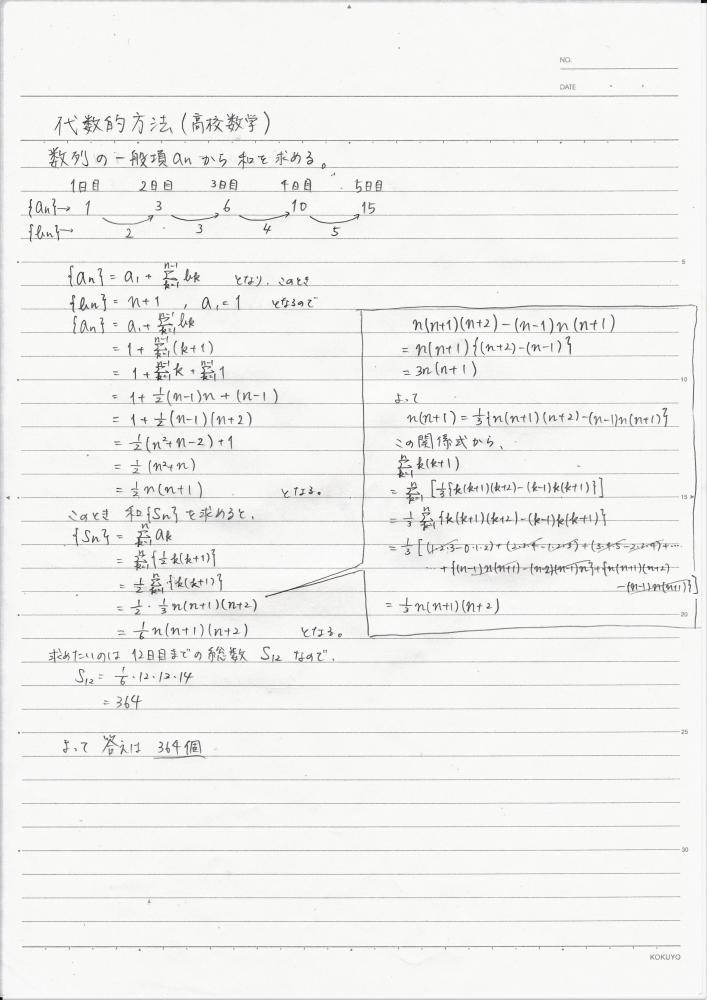 NO.
DATE
代数的方法(高校数学)
数列の一般項anから和を求める。
1日目 2日目 3日目 4日目 5日目
{an}→ 1 3 6 10 15
{bn}→ 2 3 4 5
{an} = a₁ + Σ[k=1, n-1] bk となり、このとき
{bn} = n+1 , a₁=1 となるので
{an} = a₁ + Σ[k=1, n-1] bk
= 1 + Σ[k=1, n-1] (k+1)
= 1 + Σ[k=1, n-1] k + Σ[k=1, n-1] 1
= 1 + 1/2 (n-1)n + (n-1)
= 1 + 1/2 (n-1)(n+2)
= 1/2 (n²+n-2) + 1
= 1/2 (n²+n)
= 1/2 n(n+1) となる。
このとき 和{Sn}を求めると、
{Sn} = Σ[k=1, n] ak
= Σ[k=1, n] {1/2 k(k+1)}
= 1/2 Σ[k=1, n] {k(k+1)}
= 1/2 · 1/3 n(n+1)(n+2)
= 1/6 n(n+1)(n+2) となる。
n(n+1)(n+2) - (n-1)n(n+1)
= n(n+1){(n+2)-(n-1)}
= 3n(n+1)
よって
n(n+1) = 1/3 {n(n+1)(n+2)-(n-1)n(n+1)}
この関係式から、
Σ[k=1, n] k(k+1)
= Σ[k=1, n] [1/3 {k(k+1)(k+2)-(k-1)k(k+1)}]
= 1/3 Σ[k=1, n] {k(k+1)(k+2)-(k-1)k(k+1)}
= 1/3 [(1·2·3-0·1·2)+(2·3·4-1·2·3)+(3·4·5-2·3·4)+…
…+{(n-1)n(n+1)-(n-2)(n-1)n}+{n(n+1)(n+2)
-(n-1)n(n+1)}]
= 1/3 n(n+1)(n+2)
求めたいのは 12日目までの総数 S₁₂ なので、
S₁₂ = 1/6 · 12 · 13 · 14
= 364
よって 答えは 364個
5
10
15
20
25
30
KOKUYO